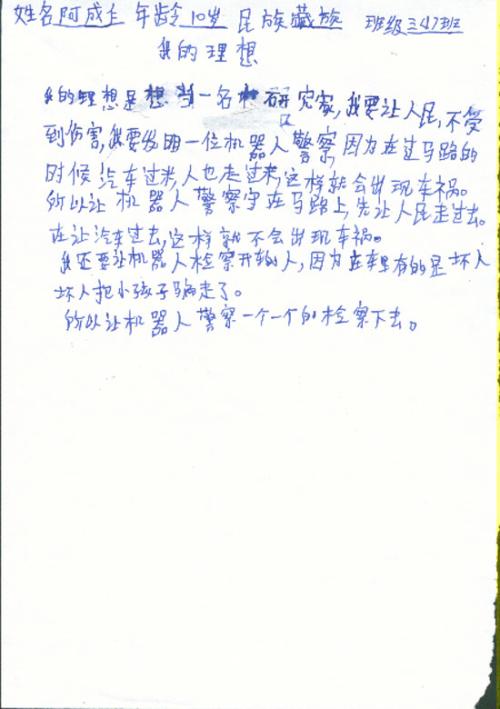 姓名阿成七 年龄10岁 民族藏族 班级三47班
我的理想
我的理想是想当一名研究家,我要让人民,不受
到伤害,我要发明一位机器人警察,因为在过马路的
时候汽车过来,人也走过来,这样就会出现车祸。
所以让机器人警察守在马路上,先让人民走过去。
在让汽车过去,这样就不会出现车祸。
我还要让机器人检察开车的人,因为在车里有的是坏人
坏人把小孩子骗走了。
所以让机器人警察一个一个的检察下去。